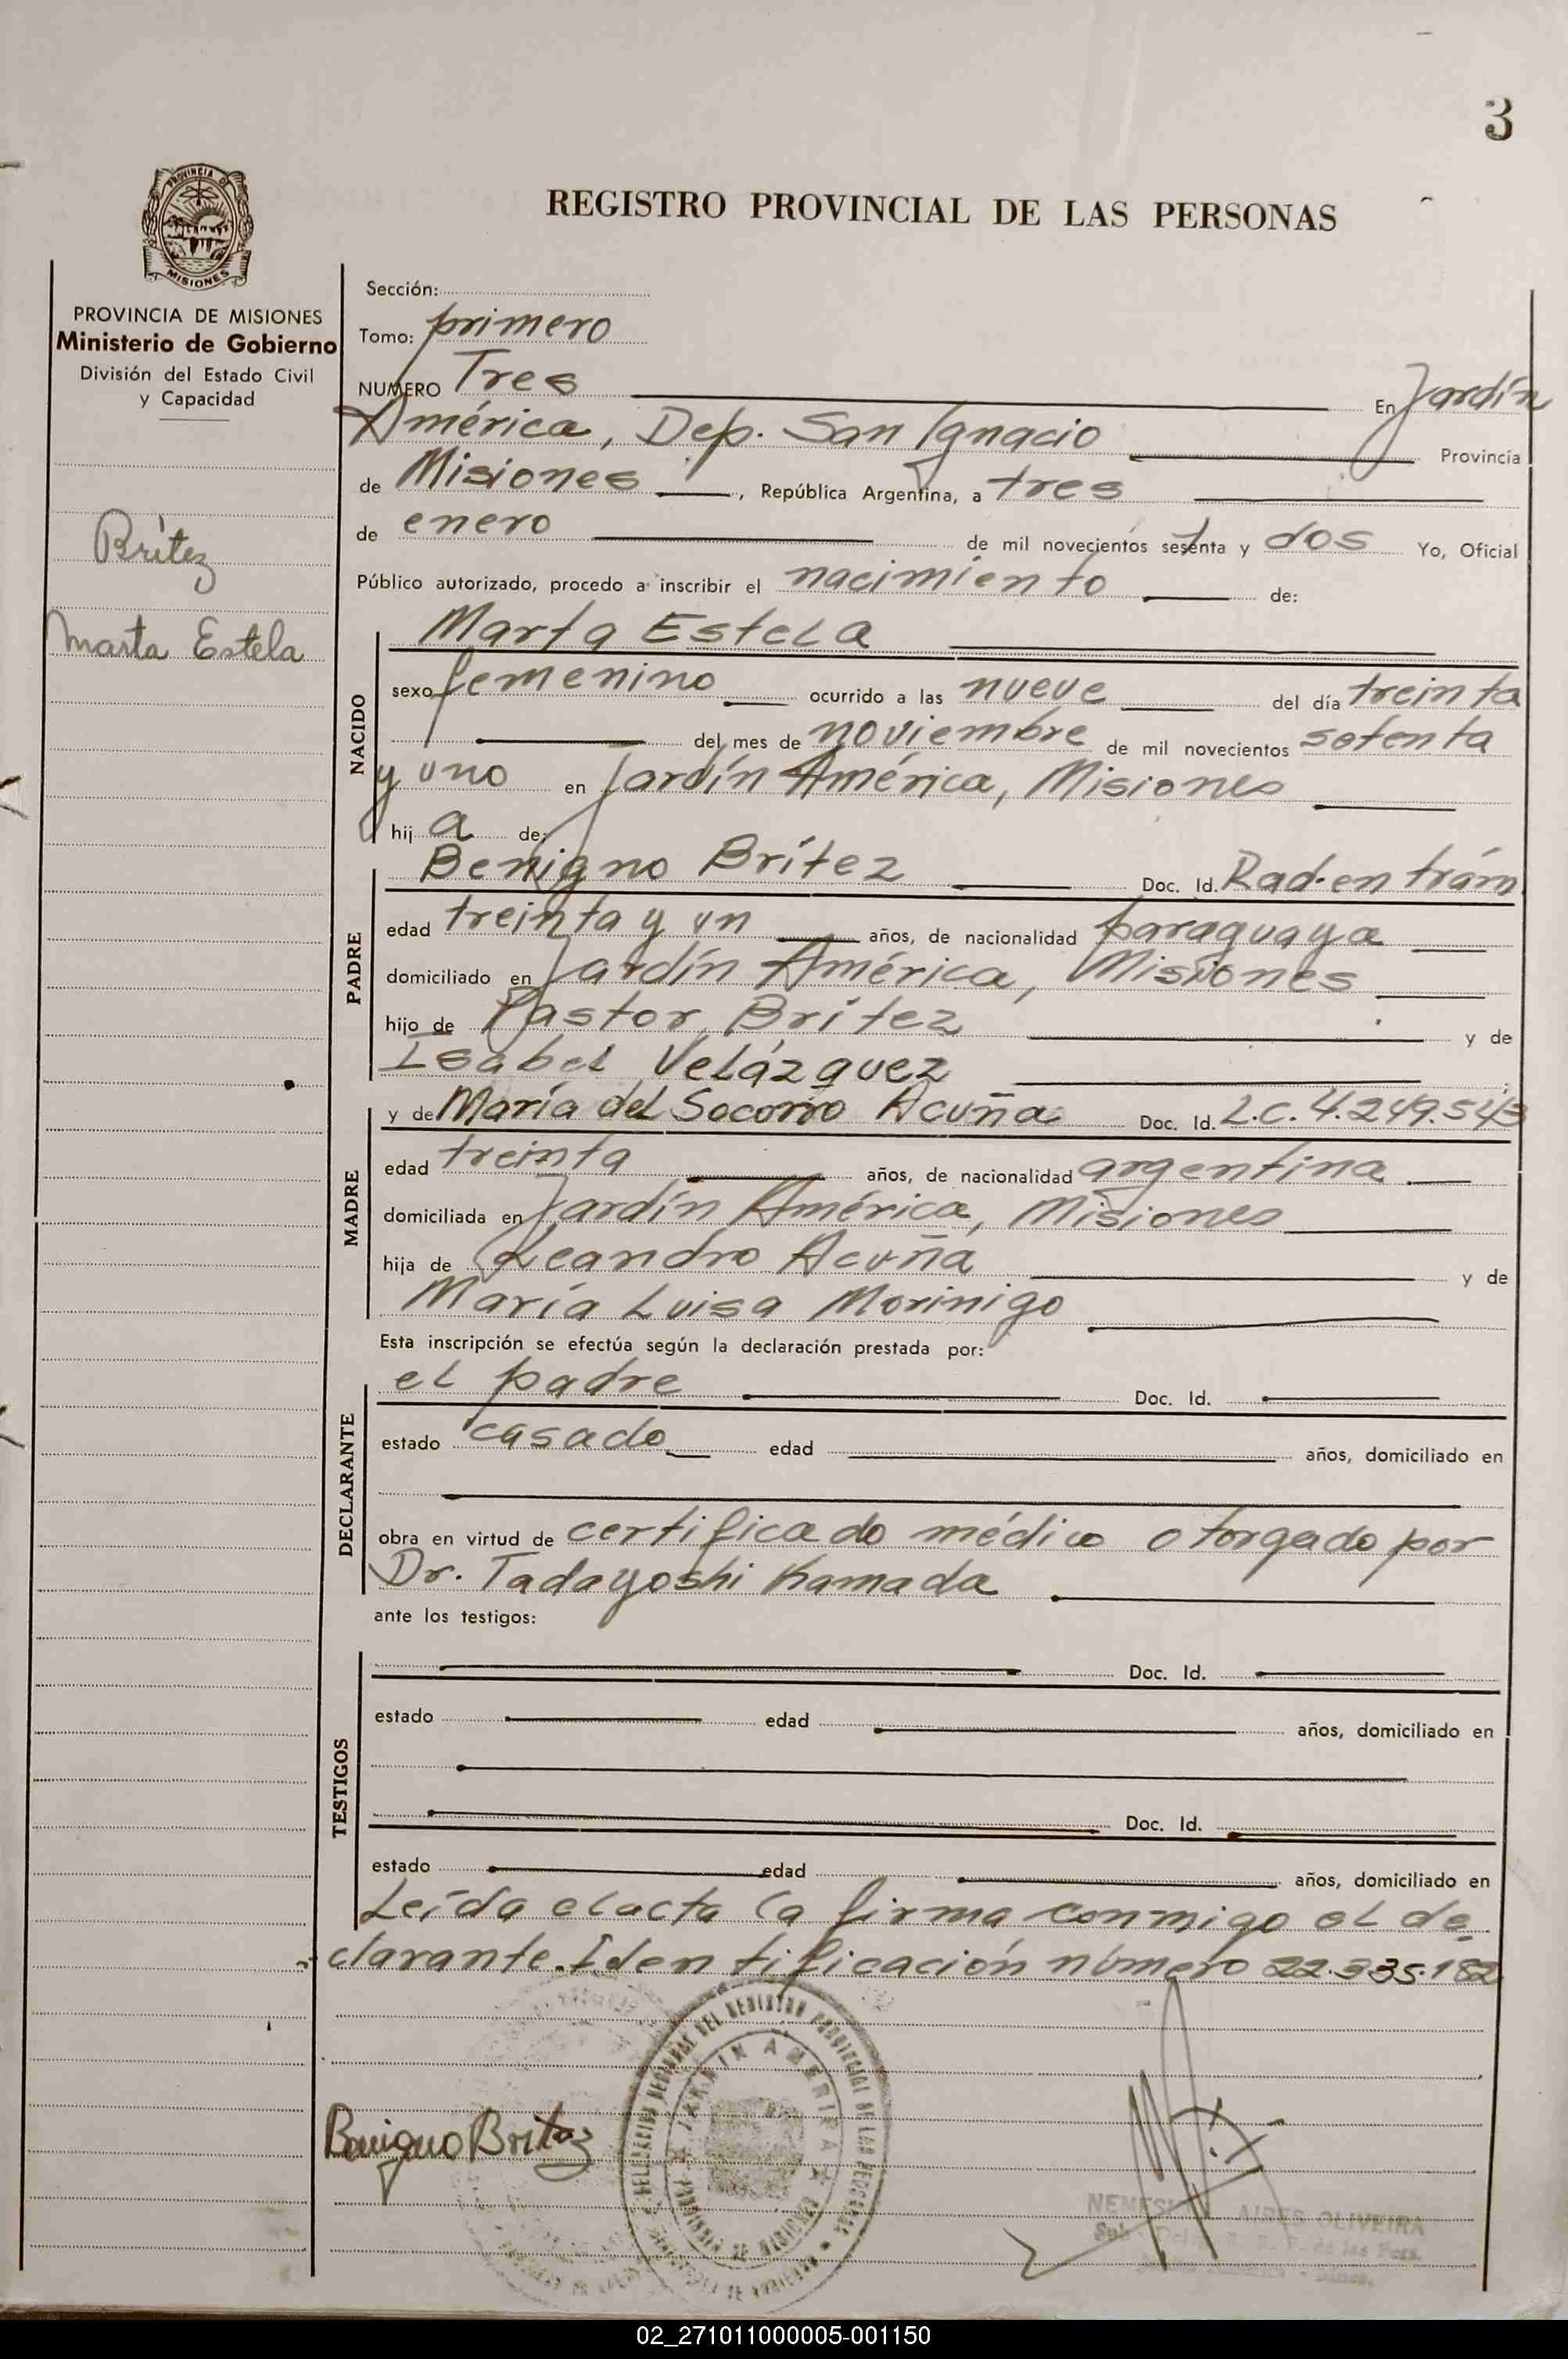 3
PROVINCIA DE
MISIONES
REGISTRO PROVINCIAL DE LAS PERSONAS
PROVINCIA DE MISIONES
Ministerio de Gobierno
División del Estado Civil
y Capacidad
Brítez
Marta Estela
Sección:
Tomo: primero
NUMERO Tres En Jardín
América, Dep. San Ignacio Provincia
de Misiones, República Argentina, a tres
de enero de mil novecientos setenta y dos Yo, Oficial
Público autorizado, procedo a inscribir el nacimiento de:
NACIDO
Marta Estela
sexo femenino ocurrido a las nueve del día treinta
del mes de noviembre de mil novecientos setenta
y uno en Jardín América, Misiones
hij a de:
PADRE
Benigno Brítez Doc. Id. Rad. en trám
edad treinta y un años, de nacionalidad paraguaya
domiciliado en Jardín América, Misiones
hijo de Pastor Brítez y de
Isabel Velázquez
MADRE
y de María del Socorro Acuña Doc. Id. L.C. 4.249.543
edad treinta años, de nacionalidad argentina
domiciliada en Jardín América, Misiones
hija de Leandro Acuña y de
María Luisa Morinigo
Esta inscripción se efectúa según la declaración prestada por:
DECLARANTE
el padre Doc. Id.
estado casado edad años, domiciliado en
obra en virtud de certificado médico otorgado por
Dr. Tadayoshi Kamada
ante los testigos:
TESTIGOS
Doc. Id.
estado edad años, domiciliado en
Doc. Id.
estado edad años, domiciliado en
Leída el acta la firma conmigo el de
clarante. Identificación número 22.335.182
Benigno Britez
DELEGACION REGIONAL DEL REGISTRO PROVINCIAL DE LAS PERSONAS
JARDIN AMERICA
PROVINCIA DE MISIONES
MINISTERIO DE GOBIERNO
AIRES OLIVEIRA
de las Pers.
02_271011000005-001150